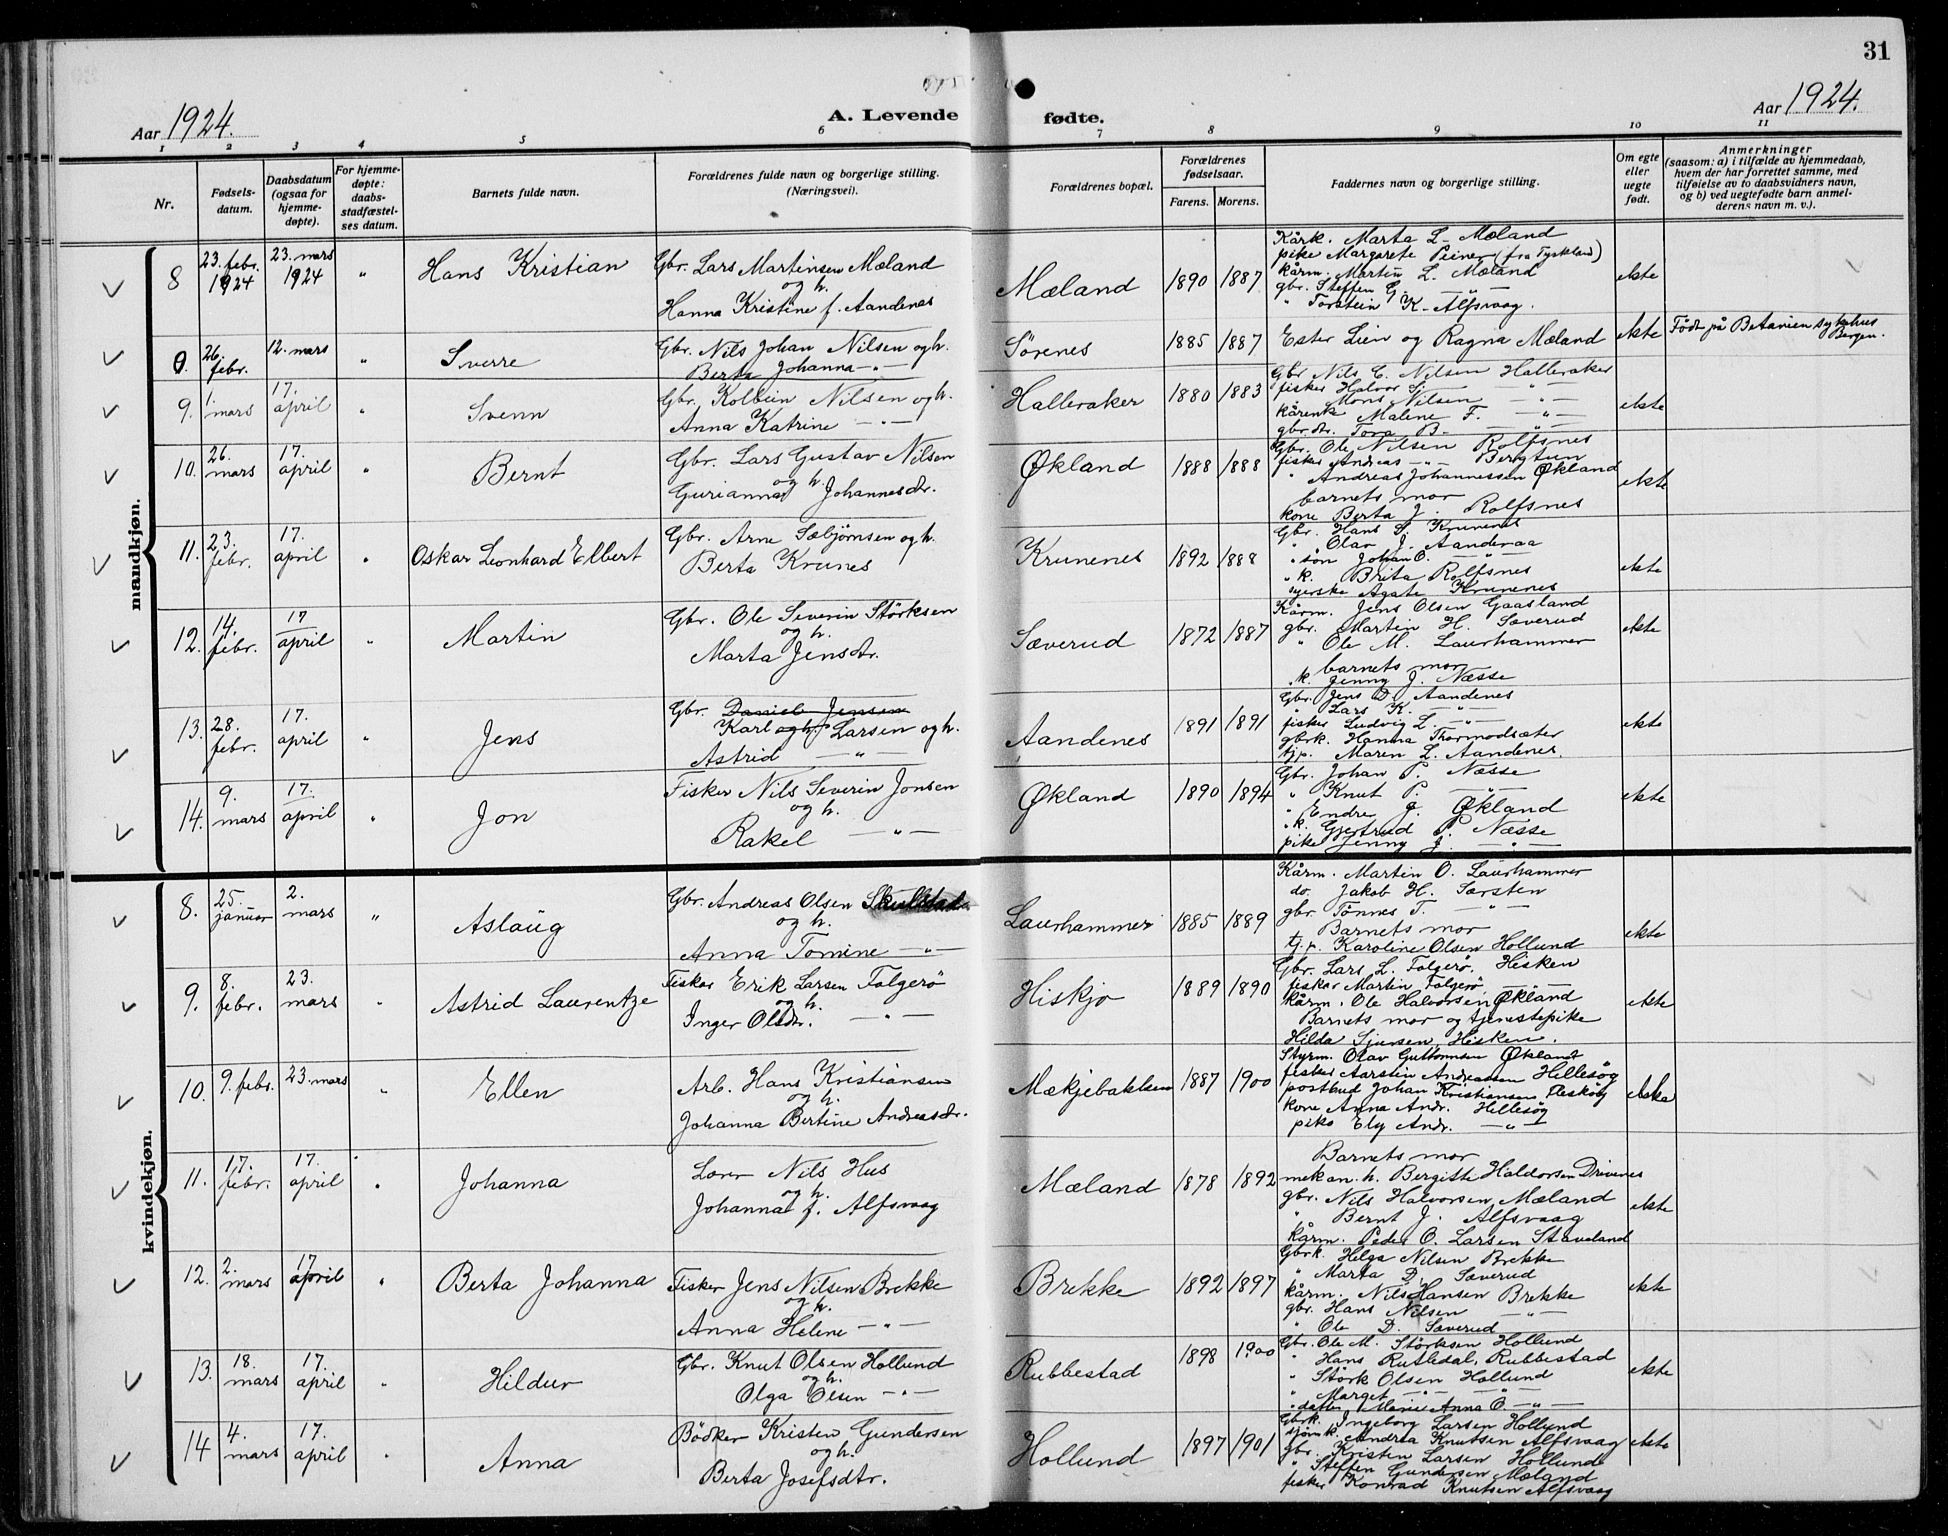 31
Aar 1924.
A. Levende
fødte.
Aar 1924.
1 2 3 4 5 6 7 8 9 10 11
Nr.
Fødsels-
datum.
Daabsdatum
(ogsaa for
hjemme-
døpte).
For hjemme-
døpte:
daabs-
stadfæstel-
ses datum.
Barnets fulde navn.
Forældrenes fulde navn og borgerlige stilling.
(Næringsvei).
Forældrenes bopæl.
Forældrenes
fødselsaar.
Farens. Morens.
Faddernes navn og borgerlige stilling.
Om egte
eller
uegte
født.
Anmerkninger
(saasom: a) i tilfælde av hjemmedaab,
hvem der har forrettet samme, med
tilføielse av to daabsvidners navn,
og b) ved uegtefødte barn anmel-
derens navn m. v.).
mandkjøn.
8 23. febr. 1924 23. mars 1924 " Hans Kristian
Gbr. Lars Martinsen Mæland
og h.
Hanna Kristine f. Aandenes
Mæland 1890 1887
Kårk. Marta L. Mæland
pike Margarete Peiner (fra Tyskland)
kårm. Martin L. Mæland
gbr. Steffen G. — " —
" Torstein K. Alfsvaag.
ekte
9. 26. febr. 12. mars " Sverre
Gbr. Nils Johan Nilsen og h.
Berta Johanna — " —
Sørenes 1885 1887
Ester Lien og Ragna Mæland
ekte
Født på Betanien sykehus
Bergen.
9. 1. mars 17. april " Svenn
Gbr. Kolbein Nilsen og h.
Anna Katrine — " —
Halleraker 1880 1883
Gbr Nils C. Nilsen Halleraker
fisker Halvor S. — " —
Mons Nilsen — " —
kårenk Malene F. — " —
gbr.dr. Tora B. — " —
ekte
10. 26. mars 17. april " Bernt
Gbr. Lars Gustav Nilsen
og h.
Gurianna Johannesdr.
Økland 1888 1888
Gbr. Ole Nilsen Rolfsnes
fisker Andreas — " — Bergtun
" Andreas Johannessen Økland
barnets mor
kone Berta J. Rolfsnes
ekte
11. 23. febr. 17. april " Oskar Leonhard Elbert
Gbr. Arne Sæbjørnsen og h.
Berta Krunes
Krunenes 1892 1888
Gbr. Hans S. Krunenes
" Olav J. Aanderaa
" søn Johan O. — " —
" k. Brita Rolfsnes
syerske Agate Krunenes
ekte
12. 14. febr. 17 april " Martin
Gbr. Ole Severin Störksen
og h.
Marta Jensdr.
Sæverud 1872 1887
Kårm. Jens Olsen Gaasland
gbr. Martin H. Sæverud
" Ole M. Laurhammer
barnets mor
" k. Jenny J. Næsse
ekte
13. 28. febr. 17. april " Jens
Gbr. Daniel Jensen
Karl og h. Larsen og h.
Astrid — " —
Aandenes 1891 1891
Gbr. Jens D. Aandenes
" Lars K. — " —
fisker Ludvig L. — " —
gbrk. Hanna Thormodsæter
tj.p. Maren L. Aandenes.
ekte
14. 9. mars 17. april " Jon
Fisker Nils Severin Jonsen
og h.
Rakel — " —
Økland 1890 1894
Gbr. Johan P. Næsse
" Knut P. — " —
" Endre J. Økland
" k. Gjertrud P. Næsse
pike Jenny J. — " —
ekte
kvindekjøn.
8. 25. januar 2. mars " Aslaug
Gbr. Andreas Olsen
og h.
Anna Tomine — " —
Laurhammer 1885 1889
Kårm. Martin O. Laurhammer
do. Jakob H. Sørsten
gbr. Tönnes T. — " —
Barnets mor
tj.p. Karoline Olsen Hollund
ekte
9. 8. febr. 23. mars " Astrid Laurentze
Fisker Erik Larsen Folgerö
og h.
Inger Olsdr. — " —
Hiskjo 1889 1890
Gbr. Lars L. Folgerø, Hisken
fisker Martin Folgerö — " —
kårm. Ole Halvorsen Økland
Barnets mor og tjenestepike
Hilda Sjursen, Hisken.
ekte
10. 9. febr. 23. mars " Ellen
Arb. Hans Kristiansen
og h.
Johanna Bertine Andreasdr.
Mækjebakken 1887 1900
Styrm. Olav Guttormsen Økland
fisker Aarstein Andreassen Hillesöy
postbud Johan Kristiansen
kone Anna Andr. Hillesöy
pike Ely Andr. — " —
11. 17. febr. 17. april " Johanna
Lærer Nils Hus
og h.
Johanna f. Alfsvaag
Mæland 1878 1892
Barnets mor
mekan. h. Bergitte Haldorsen Drivenes
gbr. Nils Halvorsen, Mæland
" Bernt J. Alfsvaag
kårm. Peder O. Larsen Staveland
ekte
12. 2. mars 17 april " Berta Johanna
Fisker Jens Nilsen Brekke
og h.
Anna Helene — " —
Brekke 1892 1897
Gbrk. Helga Nilsen Brekke
" Marta D. Sæverud
kårm. Nils Hansen Brekke
gbr. Hans Nilsen — " —
" Ole D. Sæverud
ekte
13. 18. mars 17. april " Hildur
Gbr. Knut Olsen Hollund
og h.
Olga Olsen — " —
Rubbestad 1898 1900
Gbr. Ole M. Störksen Hollund
" Hans Rutledal, Rubbestad
" Störk Olsen Hollund
" Marget — " — — " —
" datter Marie Anna O. — " —
ekte
14 4. mars 17. april " Anna
Bödker Kristen Gundersen
og h.
Berta Josefsdtr.
Hollund 1897 1901
Gbrk. Ingeborg Larsen Hollund
sjøm.k. Andrea Knutsen Alfsvaag
Gbr. Kristen Larsen Hollund
" Steffen Gundersen Mæland
fisker Konrad Knutsen Alfsvaag
ekte